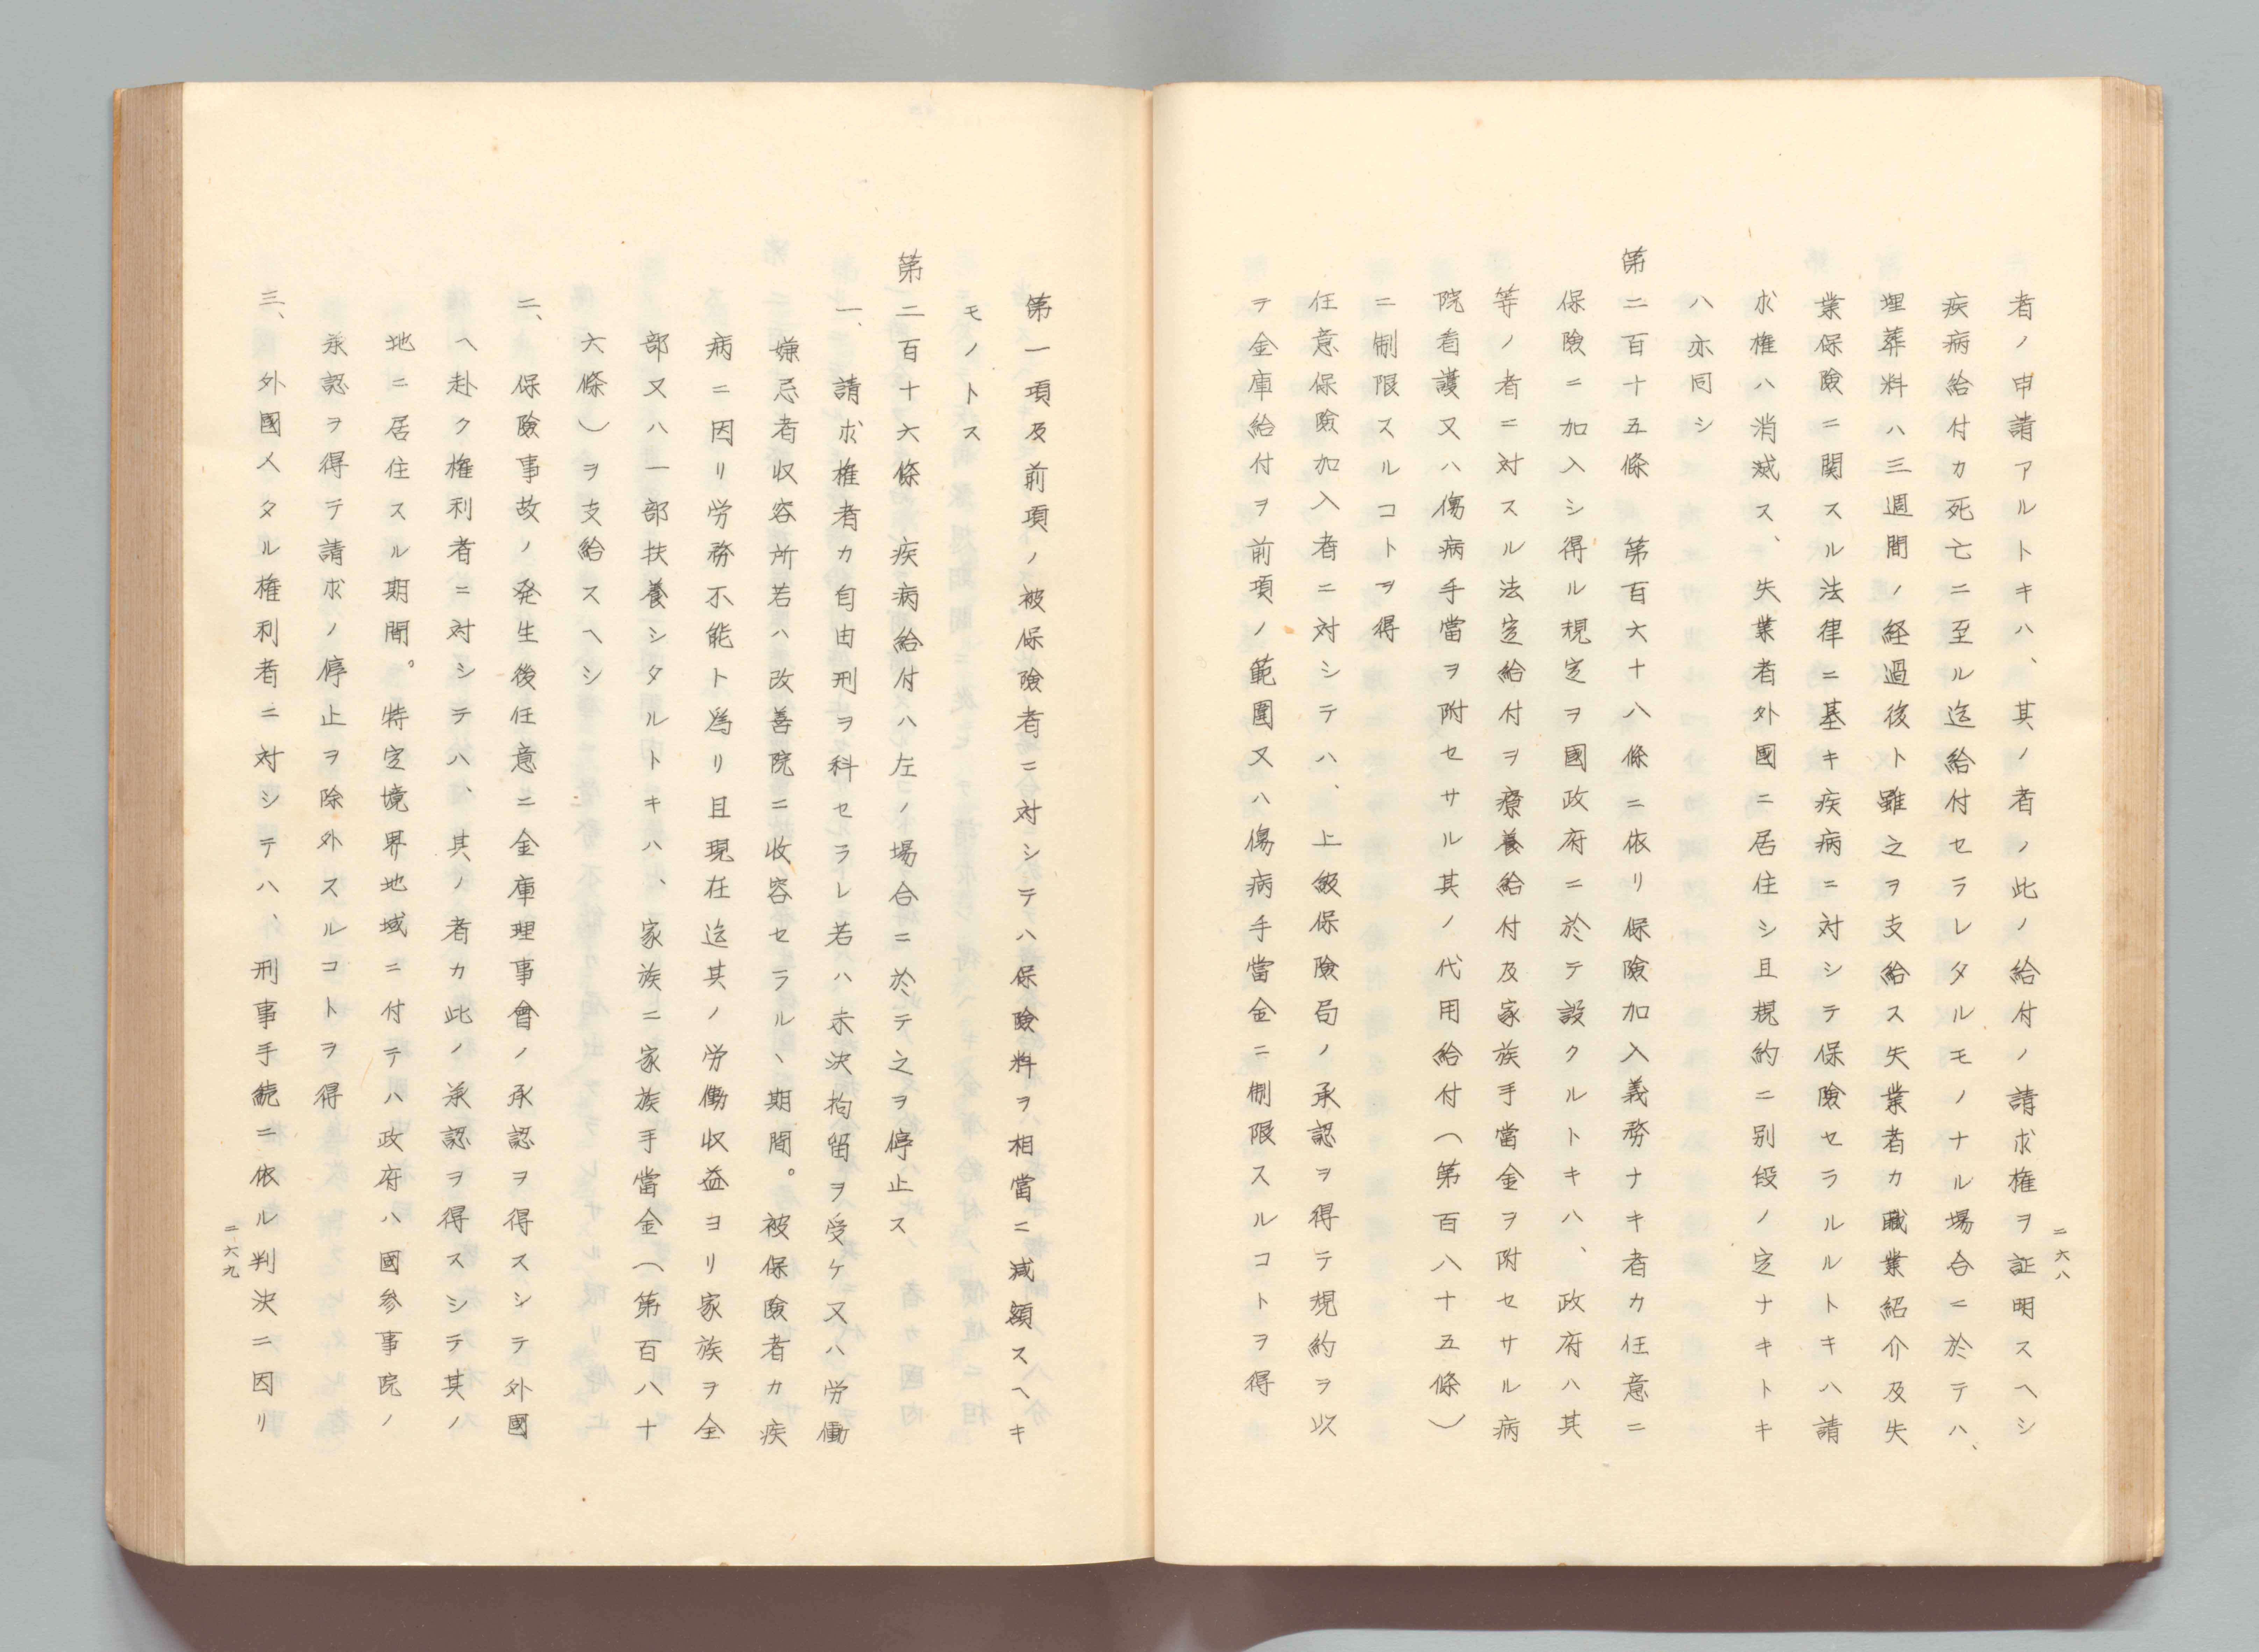 者ノ申請アルトキハ、其ノ者ノ此ノ給付ノ請求権ヲ証明スヘシ
疾病給付カ死亡ニ至ル迄給付セラレタルモノナル場合ニ於テハ、
埋葬料ハ三週間ノ経過後ト雖之ヲ支給ス失業者カ職業紹介及失
業保険ニ関スル法律ニ基キ疾病ニ対シテ保険セラルルトキハ請
求権ハ消滅ス、失業者外國ニ居住シ且規約ニ別段ノ定ナキトキ
ハ亦同シ
第二百十五條　第百六十八條ニ依リ保険加入義務ナキ者カ任意ニ
保険ニ加入シ得ル規定ヲ國政府ニ於テ設クルトキハ、政府ハ其
等ノ者ニ対スル法定給付ヲ療養給付及家族手當金ヲ附セサル病
院看護又ハ傷病手當ヲ附セサル其ノ代用給付（第百八十五條）
ニ制限スルコトヲ得
任意保険加入者ニ対シテハ、上級保険局ノ承認ヲ得テ規約ヲ以
テ金庫給付ヲ前項ノ範圍又ハ傷病手當金ニ制限スルコトヲ得
二六八
第一項及前項ノ被保険者ニ対シテハ保険料ヲ相當ニ減額スヘキ
モノトス
第二百十六條　疾病給付ハ左ノ場合ニ於テ之ヲ停止ス
一、請求権者カ自由刑ヲ科セラレ若ハ未決拘留ヲ受ケ又ハ労働
嫌忌者収容所若ハ改善院ニ收容セラルヽ期間。被保険者カ疾
病ニ因リ労務不能ト為リ且現在迄其ノ労働収益ヨリ家族ヲ全
部又ハ一部扶養シタルトキハ、家族ニ家族手當金（第百八十
六條）ヲ支給スヘシ
二、保険事故ノ発生後任意ニ金庫理事會ノ承認ヲ得スシテ外國
ヘ赴ク権利者ニ対シテハ、其ノ者カ此ノ承認ヲ得スシテ其ノ
地ニ居住スル期間。特定境界地域ニ付テハ政府ハ國参事院ノ
承認ヲ得テ請求ノ停止ヲ除外スルコトヲ得
三、外國人タル権利者ニ対シテハ、刑事手続ニ依ル判決ニ因リ
二六九